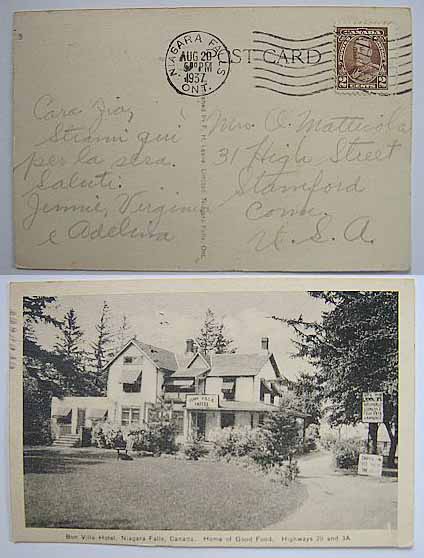 NIAGARA FALLS
AUG 20
PM
1937
ONT.
POST CARD
2 CENTS 2
Cara Zia,
Stiami qui
per la sera.
Saluti.
Jennie, Virginia
e Adelina
F. H. Leslie, Limited, Niagara Falls, Ont.
Mrs. O. Mattiola
31 High Street
Stamford
Conn.
U. S. A.
BON VILLA
HOTEL
Bon Villa Hotel, Niagara Falls, Canada. Home of Good Food. Highways 20 and 3A